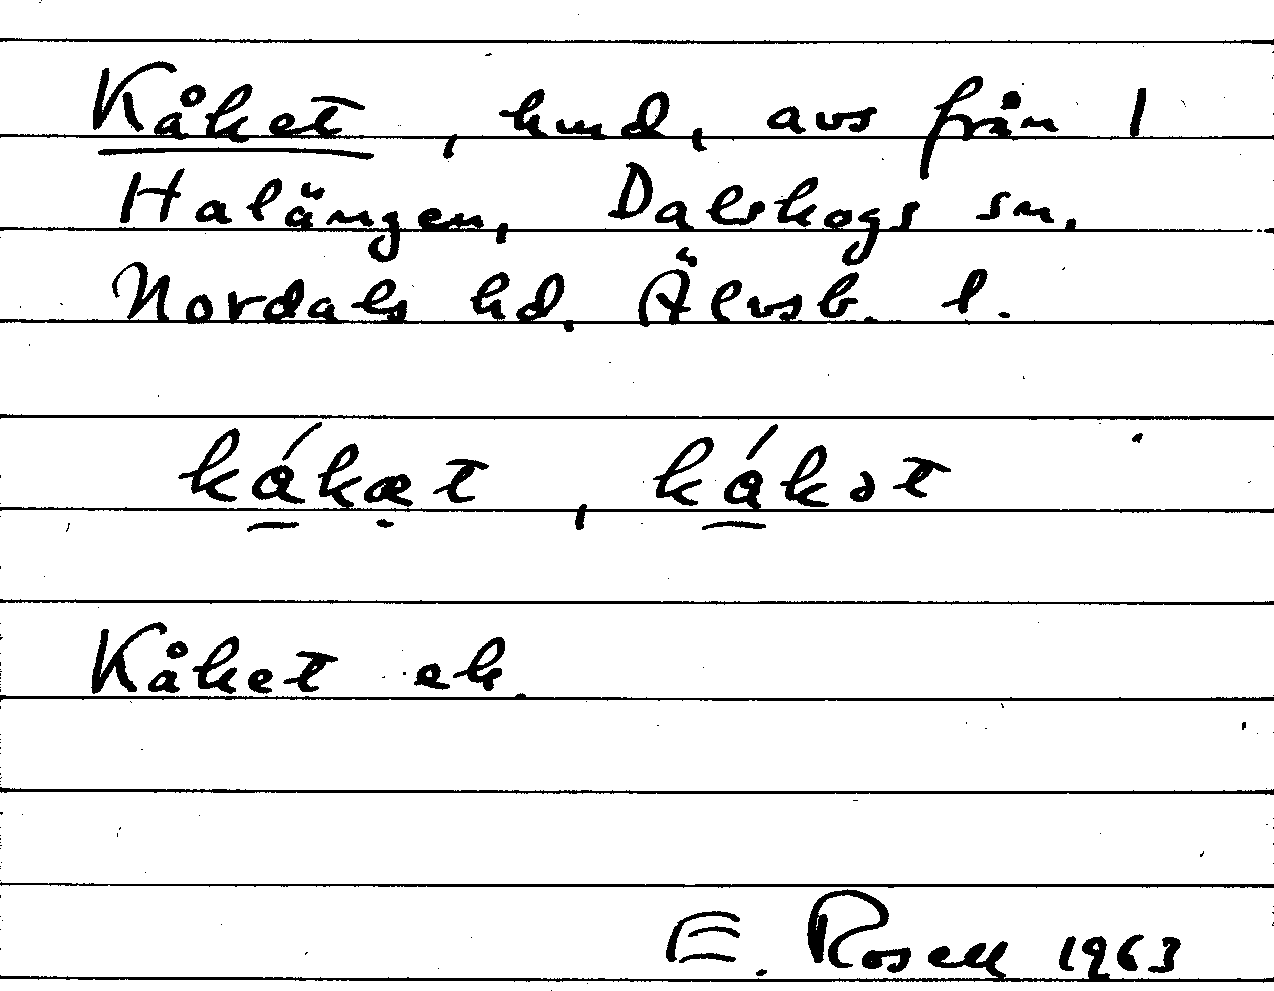 Kåket, hmd, avs från 1
Halängen, Dalskogs sn,
Nordals hd. Älvsb. l.
kåkæt, kåkət
Kåket ek.
E. Rosell 1963